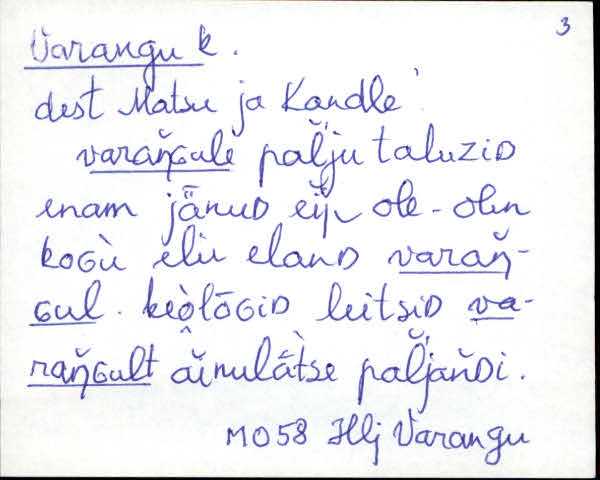 3
Varangu k.
dest Matsu ja Kandle
varaŋ̆ɢulè pal̆'ju taluziᴅ
enam jǟnuᴅ ei̯ ole - olen
koɢù elu elanᴅ varaŋ̆-
ɢul. keòlōɢiᴅ leitsiᴅ va-
raŋ̆ɢult ăinulā̂tse pal̆'jan̆ᴅi.
M058 Hlj Varangu